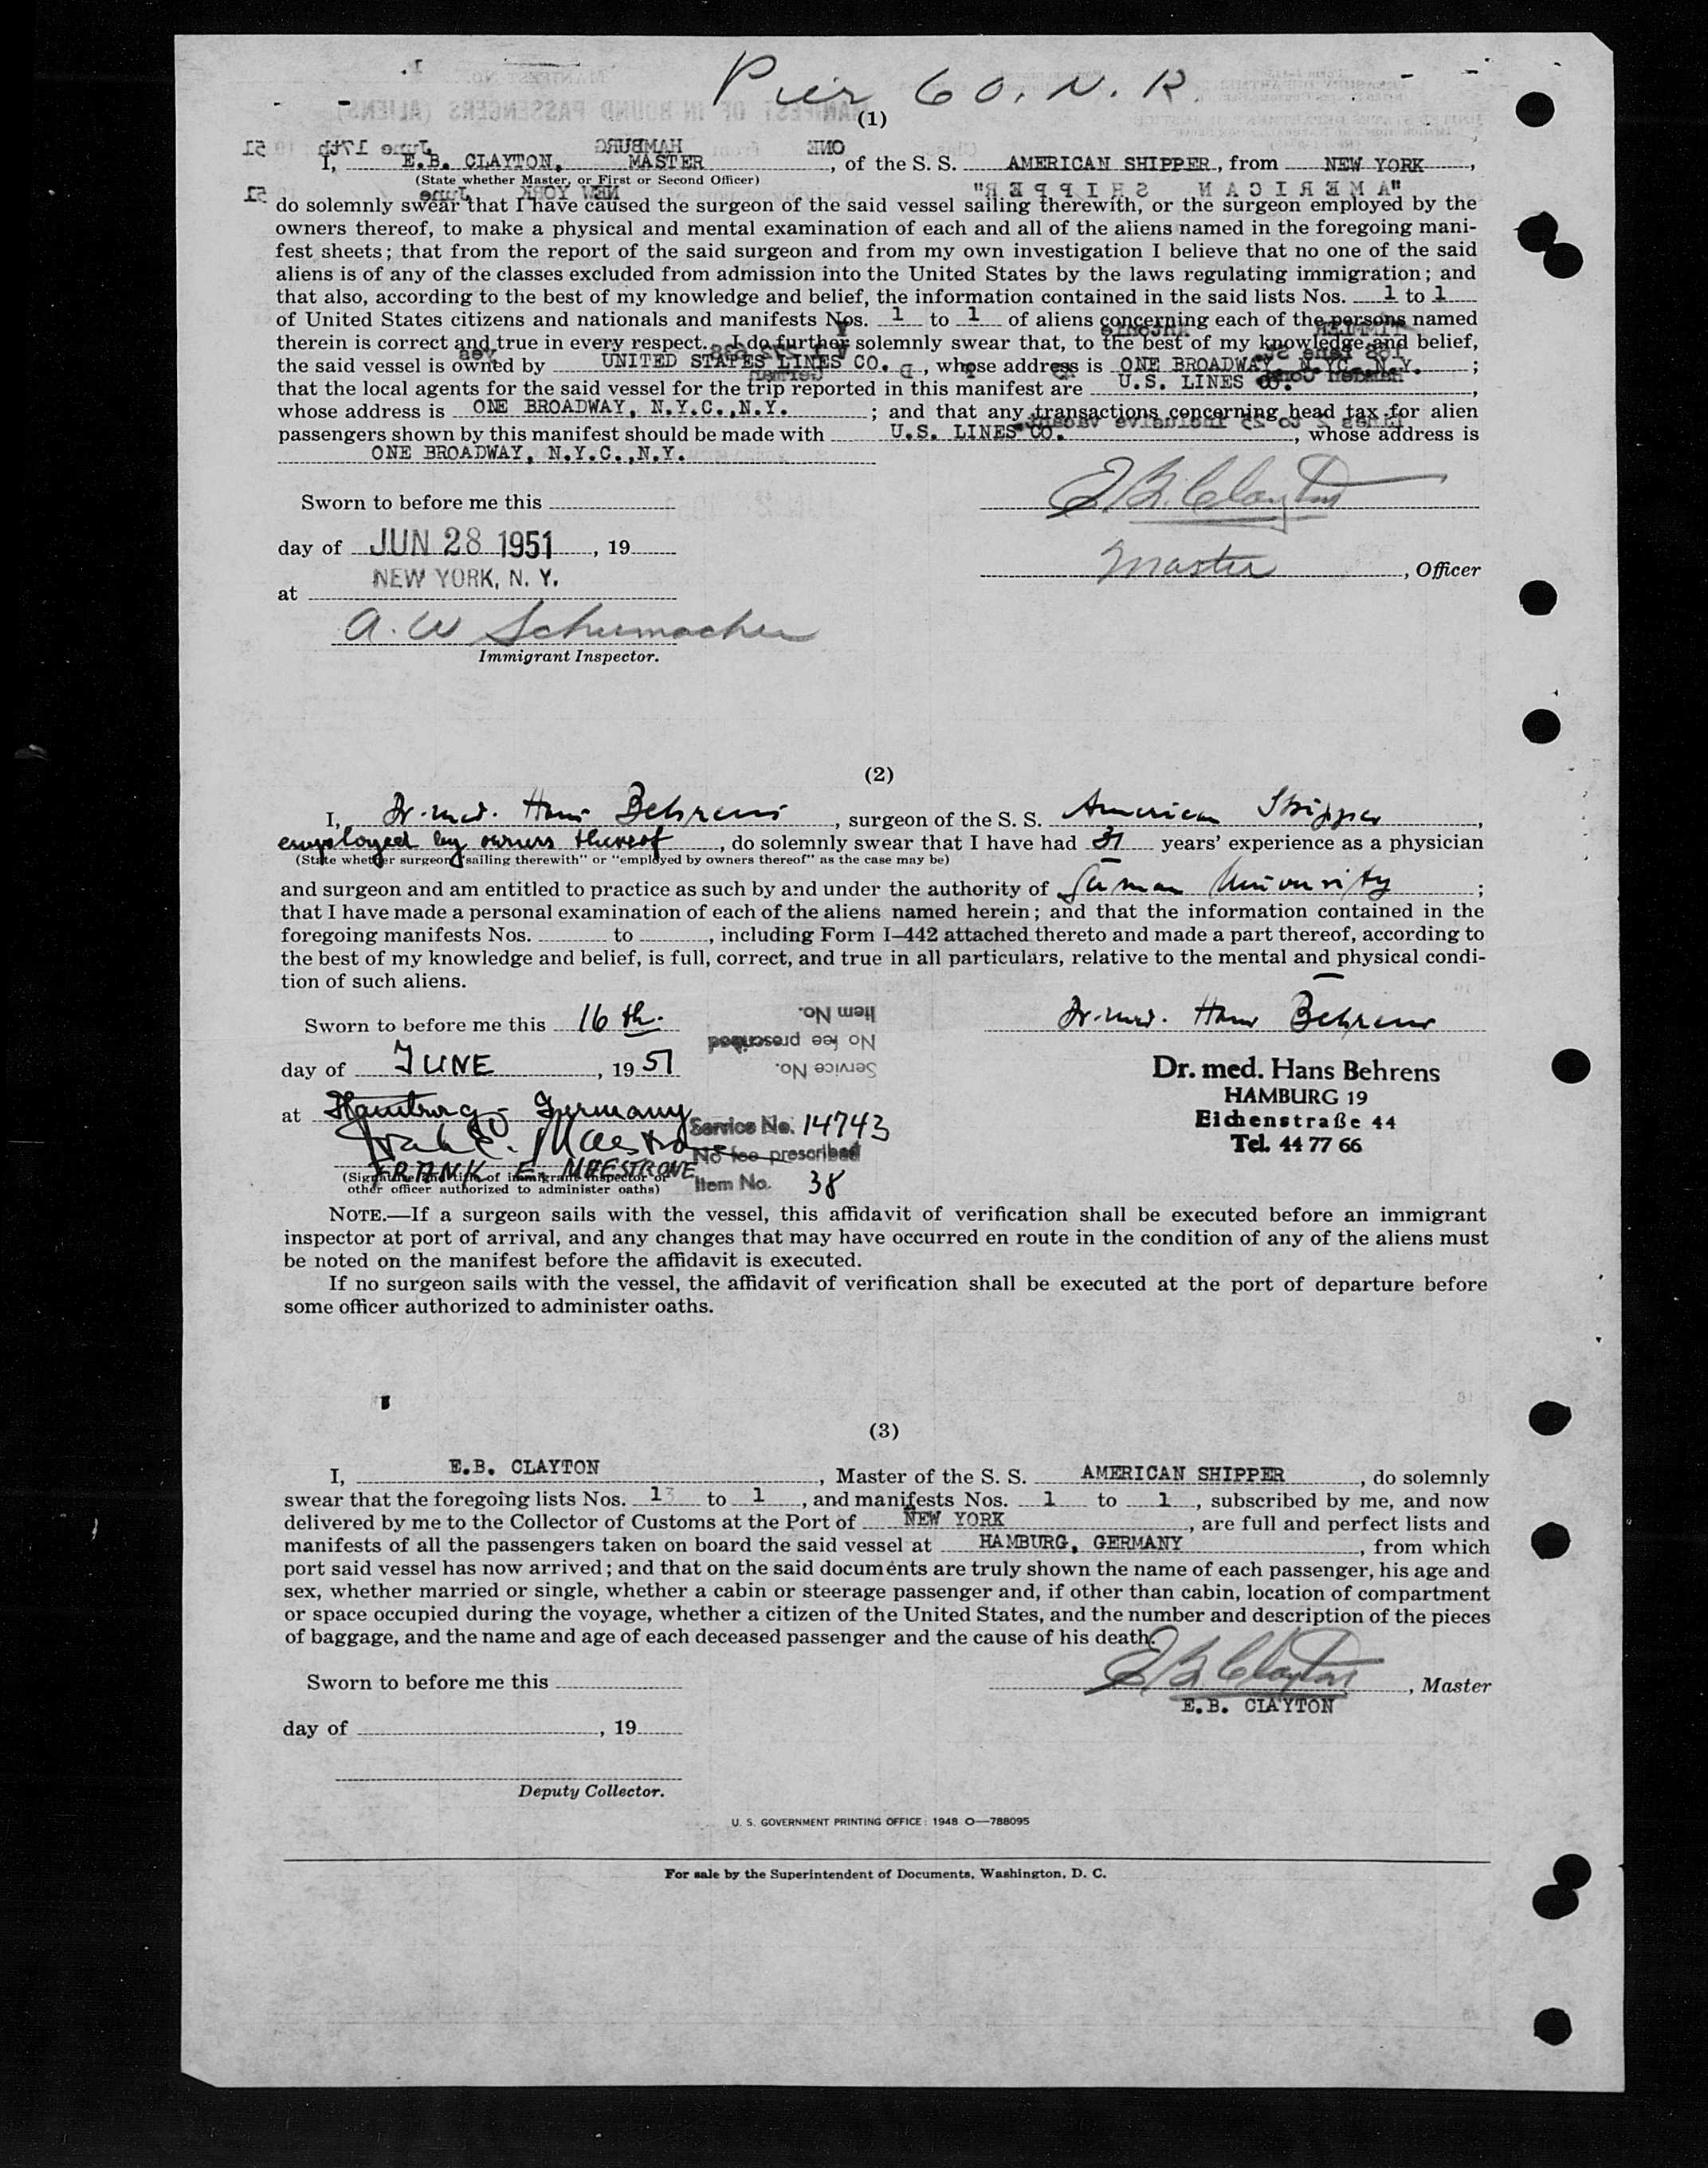 Pier 60. N. R.
(1)
I, E.B. CLAYTON, MASTER, of the S. S. AMERICAN SHIPPER, from NEW YORK,
(State whether Master, or First or Second Officer)
do solemnly swear that I have caused the surgeon of the said vessel sailing therewith, or the surgeon employed by the
owners thereof, to make a physical and mental examination of each and all of the aliens named in the foregoing mani-
fest sheets; that from the report of the said surgeon and from my own investigation I believe that no one of the said
aliens is of any of the classes excluded from admission into the United States by the laws regulating immigration; and
that also, according to the best of my knowledge and belief, the information contained in the said lists Nos. 1 to 1
of United States citizens and nationals and manifests Nos. 1 to 1 of aliens concerning each of the persons named
therein is correct and true in every respect. I do further solemnly swear that, to the best of my knowledge and belief,
the said vessel is owned by UNITED STAPES LINES CO., whose address is ONE BROADWAY, N.YC.,N.Y. ;
that the local agents for the said vessel for the trip reported in this manifest are U.S. LINES CO. ,
whose address is ONE BROADWAY, N.Y.C.,N.Y. ; and that any transactions concerning head tax for alien
passengers shown by this manifest should be made with U.S. LINES CO. , whose address is
ONE BROADWAY, N.Y.C.,N.Y.
Sworn to before me this
E.B. Clayton
day of JUN 28 1951, 19
Master, Officer
at NEW YORK, N. Y.
A. W Schumacher
Immigrant Inspector.
(2)
I, Dr. med. Hans Behrens, surgeon of the S. S. American Shipper,
employed by owners thereof, do solemnly swear that I have had 31 years' experience as a physician
(State whether surgeon "sailing therewith" or "employed by owners thereof" as the case may be)
and surgeon and am entitled to practice as such by and under the authority of German University ;
that I have made a personal examination of each of the aliens named herein; and that the information contained in the
foregoing manifests Nos. to , including Form I-442 attached thereto and made a part thereof, according to
the best of my knowledge and belief, is full, correct, and true in all particulars, relative to the mental and physical condi-
tion of such aliens.
Item No.
Sworn to before me this 16 th.
Dr. med. Hans Behrens
No fee prescribed
day of JUNE, 19 51
Service No.
Dr. med. Hans Behrens
HAMBURG 19
Eichenstraße 44
Tel. 44 77 66
at Hamburg - Germany
Service No. 14743
Frank E. Maestrone
No fee prescribed
FRANK E. MAESTRONE
(Signature and title of immigrant inspector or
other officer authorized to administer oaths)
Item No. 38
NOTE.—If a surgeon sails with the vessel, this affidavit of verification shall be executed before an immigrant
inspector at port of arrival, and any changes that may have occurred en route in the condition of any of the aliens must
be noted on the manifest before the affidavit is executed.
If no surgeon sails with the vessel, the affidavit of verification shall be executed at the port of departure before
some officer authorized to administer oaths.
(3)
I, E.B. CLAYTON, Master of the S. S. AMERICAN SHIPPER, do solemnly
swear that the foregoing lists Nos. 1 to 1, and manifests Nos. 1 to 1, subscribed by me, and now
delivered by me to the Collector of Customs at the Port of NEW YORK, are full and perfect lists and
manifests of all the passengers taken on board the said vessel at HAMBURG, GERMANY, from which
port said vessel has now arrived; and that on the said documents are truly shown the name of each passenger, his age and
sex, whether married or single, whether a cabin or steerage passenger and, if other than cabin, location of compartment
or space occupied during the voyage, whether a citizen of the United States, and the number and description of the pieces
of baggage, and the name and age of each deceased passenger and the cause of his death.
Sworn to before me this
E.B. Clayton, Master
E.B. CLAYTON
day of , 19
Deputy Collector.
U. S. GOVERNMENT PRINTING OFFICE: 1948 O—788095
For sale by the Superintendent of Documents, Washington, D. C.